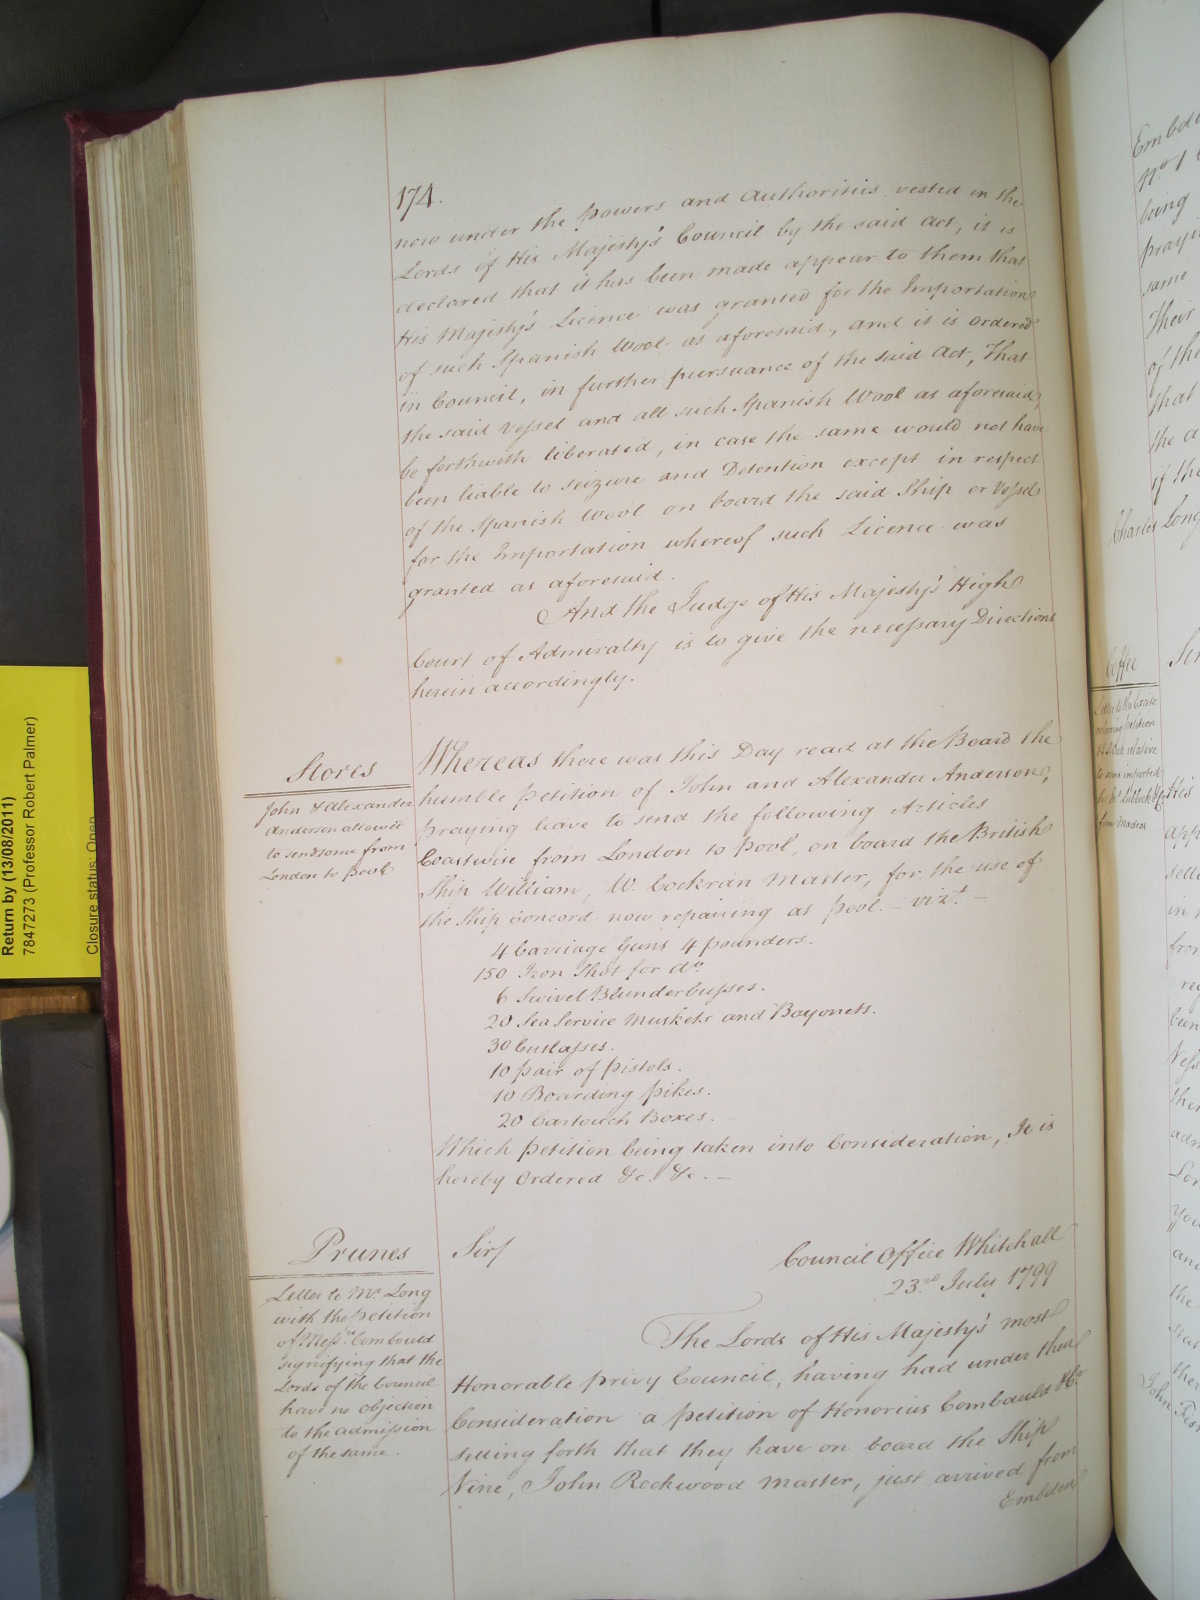 174.
now under the powers and Authorities vested in the
Lords of His Majesty's Council by the said Act, it is
declared that it has been made appear to them that
His Majesty's Licence was granted for the Importation
of such Spanish Wool as aforesaid, and it is ordered
in Council, in further pursuance of the said Act, That
the said Vessel and all such Spanish Wool as aforesaid,
be forthwith liberated, in case the same would not have
been liable to seizure and Detention except in respect
of the Spanish Wool on board the said Ship or Vessel
for the Importation whereof such Licence was
granted as aforesaid.
And the Judge of His Majesty's High
Court of Admiralty is to give the necessary Directions
herein accordingly.
Stores
John & Alexander
Anderson allowed
to send some from
London to Pool
Whereas there was this Day read at the Board the
humble Petition of John and Alexander Anderson,
praying leave to send the following Articles
Coastwise from London to Pool, on board the British
Ship William, W. Cockran Master, for the use of
the Ship Concord now repairing at Pool. – vizt. –
4 Carriage Guns 4 pounders.
150 Iron Shot for do.
6 Swivel Blunderbusses.
20 Sea Service Muskets and Bayonets.
30 Cutlasses.
10 pair of Pistols.
10 Boarding Pikes.
20 Cartouch Boxes.
Which Petition being taken into Consideration, It is
hereby Ordered &c. &c. –
Prunes
Letter to Mr. Long
with the petition
of Messrs. Combauld
signifying that the
Lords of the Council
have no objection
to the admission
of the same.
Sir/
Council Office Whitehall
23rd. July 1799
The Lords of His Majesty's most
Honorable Privy Council, having had under their
Consideration a petition of Honorius Combauld & Co
setting forth that they have on board the Ship
Nine, John Rockwood Master, just arrived from
Embden
Embden
No. 1
being
same
Their
of the
that
the
if the
Charles Long
Coffee
Letter to the Excise
to some imported
from Madras
Sir
His
in
from
been
then
Lor
you
and
the
Return by (13/08/2011)
7847273 (Professor Robert Palmer)
Closure status: Open